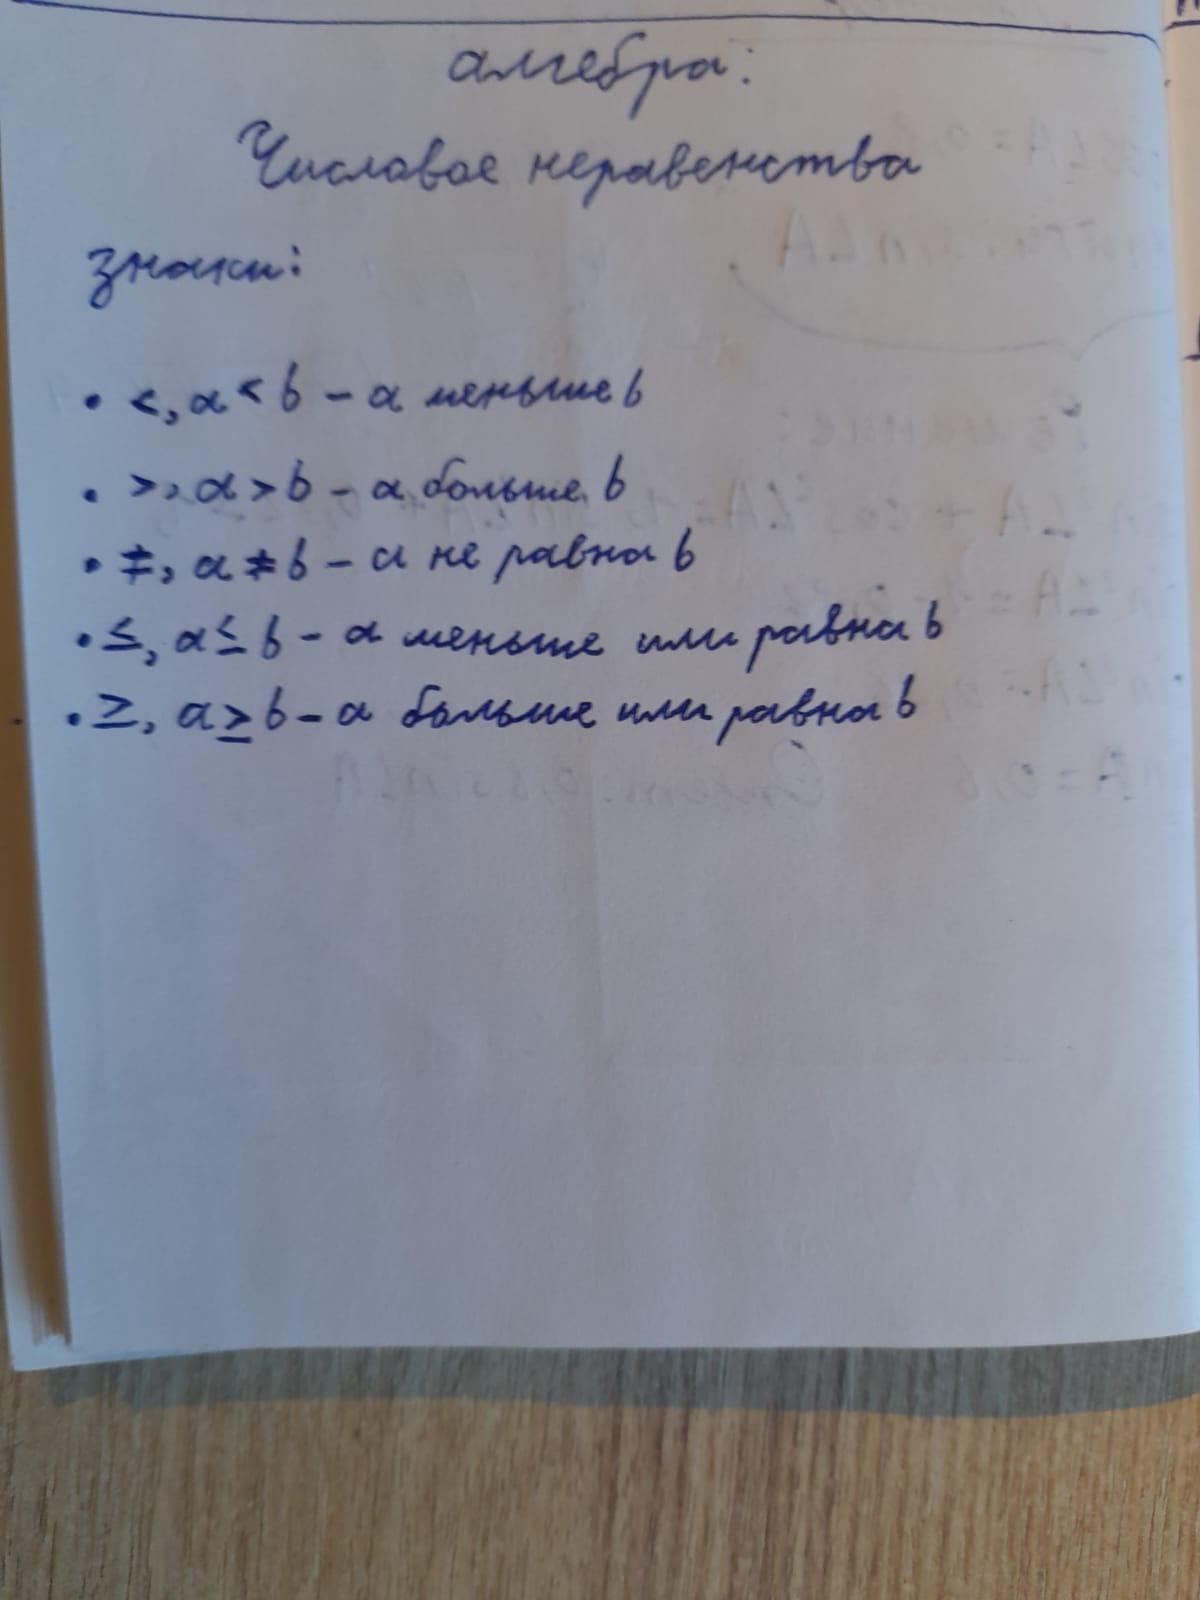 алгебра:
Числовое неравенства
знаки:
• <, a < b – a меньше b
• >, a > b – a больше b
• ≠, a ≠ b – a не равна b
• ≤, a ≤ b – a меньше или равна b
• ≥, a ≥ b – a больше или равна b